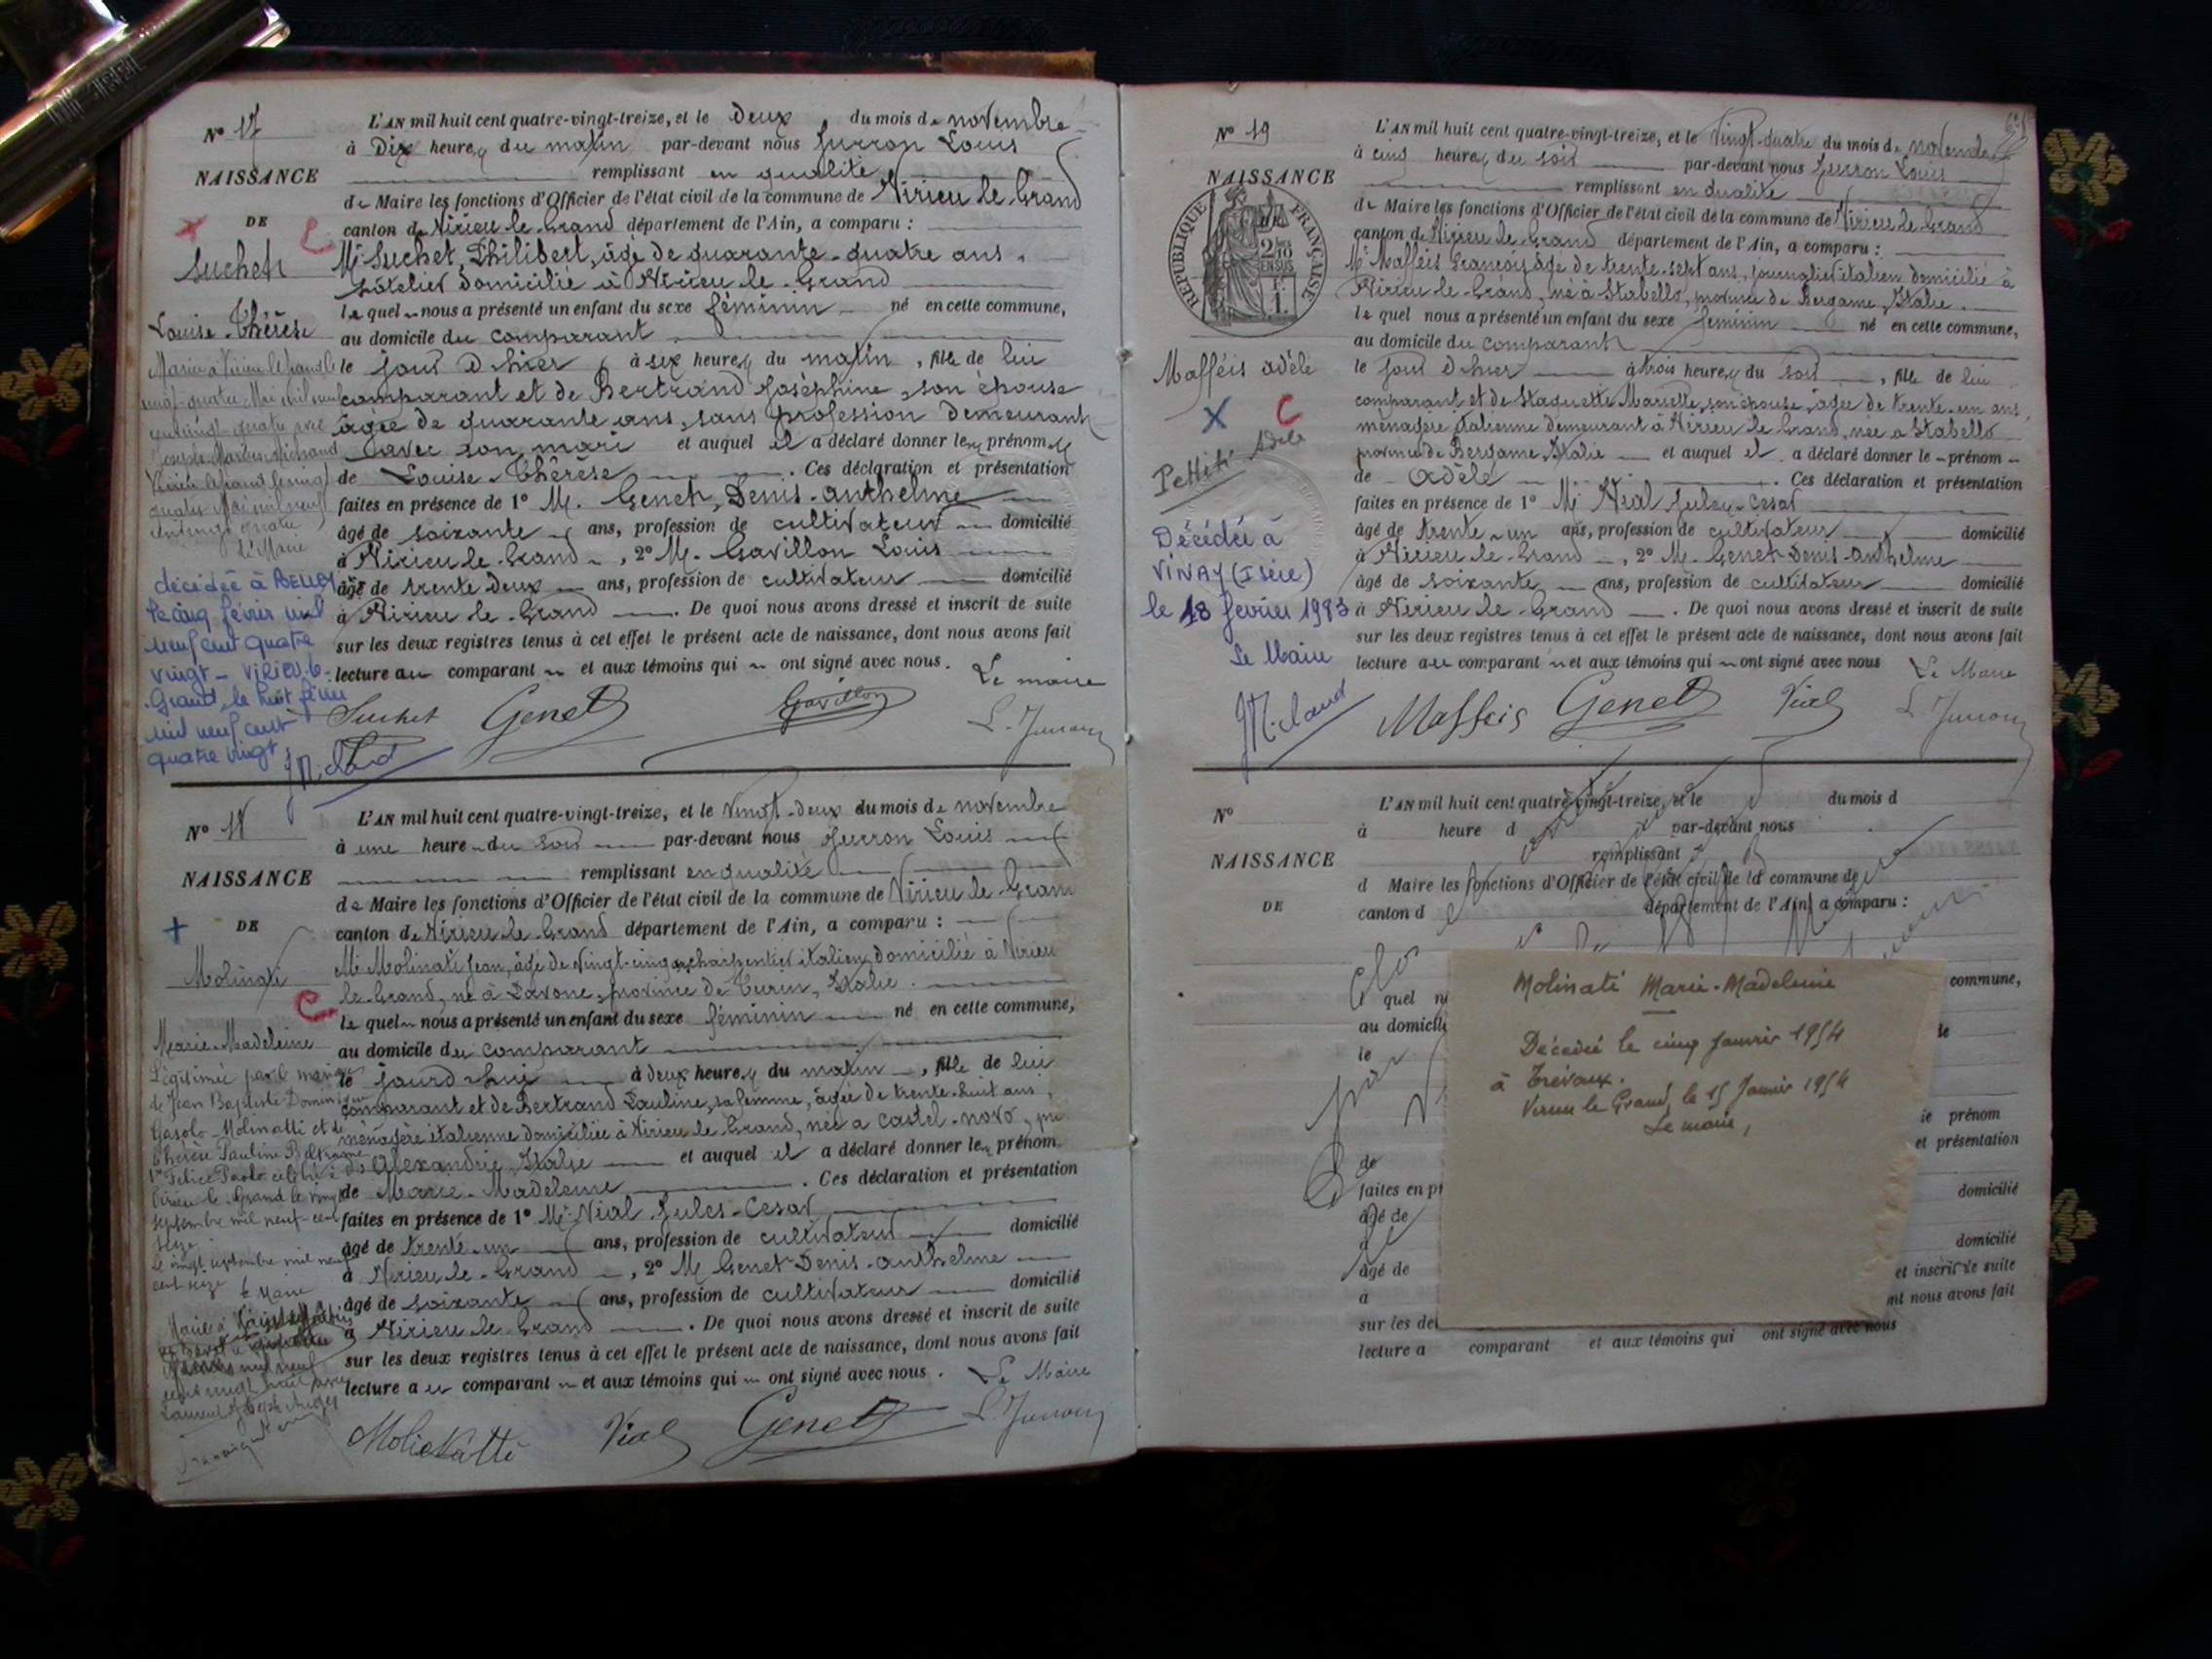 N° 17
NAISSANCE
DE
Suchet
Louise-Thérèse
L'AN mil huit cent quatre-vingt-treize, et le deux du mois de novembre
à dix heures du matin par-devant nous Jurron Louis
remplissant en qualité
de Maire les fonctions d'Officier de l'état civil de la commune de Virieu le Grand
canton de Virieu le Grand département de l'Ain, a comparu :
Mr Suchet, Philibert, âgé de quarante-quatre ans,
hôtelier domicilié à Virieu le Grand
lequel nous a présenté un enfant du sexe féminin né en cette commune,
au domicile du comparant
le jour d'hier à six heures du matin, fille de lui
comparant et de Bertrand Joséphine, son épouse
âgée de quarante ans, sans profession demeurant
avec son mari et auquel il a déclaré donner les prénoms
de Louise-Thérèse. Ces déclaration et présentation
faites en présence de 1° M. Genet, Denis-anthelme
âgé de soixante ans, profession de cultivateur domicilié
à Virieu le Grand, 2° M. Gavillon Louis
âgé de trente deux ans, profession de cultivateur domicilié
à Virieu le Grand. De quoi nous avons dressé et inscrit de suite
sur les deux registres tenus à cet effet le présent acte de naissance, dont nous avons fait
lecture au comparant et aux témoins qui ont signé avec nous. Le maire
Suchet Genet Gavillon L. Jurron
Mariée à Virieu le Grand le
vingt-quatre Mai mil neuf
Joseph Marius Michaud
Virieu le Grand le vingt
quatre Mai mil neuf
cent vingt quatre
Le Maire
décédée à BELLEY
le cinq février mil
neuf cent quatre
vingt - VIRIEU-le-
Grand, le huit février
mil neuf cent
quatre vingt
N° 18
NAISSANCE
DE
Molinati
Marie-Madeleine
L'AN mil huit cent quatre-vingt-treize, et le vingt-deux du mois de novembre
à une heure du soir par-devant nous Jurron Louis
remplissant en qualité
de Maire les fonctions d'Officier de l'état civil de la commune de Virieu le Grand
canton de Virieu le Grand département de l'Ain, a comparu :
Mr Molinati Jean, âgé de vingt-cinq ans, charpentier italien, domicilié à Virieu
le Grand, né à Pavone, province de Turin, Italie.
lequel nous a présenté un enfant du sexe féminin né en cette commune,
au domicile du comparant
le jourd'hui à deux heures du matin, fille de lui
comparant et de Bertrand Pauline, sa femme, âgée de trente-huit ans,
ménagère italienne domiciliée à Virieu le Grand, née à Castel-novo, pro
d'Alexandrie, Italie et auquel il a déclaré donner les prénom
de Marie-Madeleine. Ces déclaration et présentation
faites en présence de 1° Mr Vial Jules-Cesar
âgé de trente-un ans, profession de cultivateur domicilié
à Virieu le Grand, 2° M Genet Denis-anthelme
âgé de soixante ans, profession de cultivateur domicilié
à Virieu le Grand. De quoi nous avons dressé et inscrit de suite
sur les deux registres tenus à cet effet le présent acte de naissance, dont nous avons fait
lecture au comparant et aux témoins qui ont signé avec nous. Le Maire
Vial Genet L. Jurron
Légitimée par le mariage
de Jean Baptiste Dominique
Gasolo Molinatti et de
Thérèse Pauline
Felice Paolo célébré à
Virieu le Grand le vingt
septembre mil neuf-cent
seize
Le vingt septembre mil neuf
cent seize Le Maire
N° 19
NAISSANCE
RÉPUBLIQUE FRANÇAISE
2/10 EN SUS
Mafféis adèle
Pettiti Adèle
L'AN mil huit cent quatre-vingt-treize, et le vingt-quatre du mois de novembre
à cinq heures du soir par-devant nous Jurron Louis
remplissant en qualité
de Maire les fonctions d'Officier de l'état civil de la commune de Virieu le Grand
canton de Virieu le Grand département de l'Ain, a comparu :
Mr Mafféis François âgé de trente-sept ans, journalier italien domicilié à
Virieu le Grand, né à Stabello, province de Bergame, Italie.
lequel nous a présenté un enfant du sexe féminin né en cette commune,
au domicile du comparant
le jour d'hier à trois heures du soir, fille de lui
comparant et de Mariette, son épouse, âgée de trente-un ans,
ménagère italienne demeurant à Virieu le Grand, née à Stabello
province de Bergame, Italie et auquel il a déclaré donner le prénom
de Adèle. Ces déclaration et présentation
faites en présence de 1° Mr Vial Jules-Cesar
âgé de trente-un ans, profession de cultivateur domicilié
à Virieu le Grand, 2° M. Genet Denis-anthelme
âgé de soixante ans, profession de cultivateur domicilié
à Virieu le Grand. De quoi nous avons dressé et inscrit de suite
sur les deux registres tenus à cet effet le présent acte de naissance, dont nous avons fait
lecture au comparant et aux témoins qui ont signé avec nous Le Maire
Maffeis Genet Vial L. Jurron
Décédée à
VINAY (Isère)
le 18 février 1983
Le Maire
N°
NAISSANCE
DE
L'AN mil huit cent quatre-vingt-treize, et le du mois d
à heure d par-devant nous
remplissant
d Maire les fonctions d'Officier de l'état civil de la commune de
canton d département de l'Ain, a comparu :
Clos
quel commune,
au domicile
le
de prénom
et présentation
faites en pr domicilié
âgé de
à domicilié
âgé de et inscrit de suite
a nt nous avons fait
sur les de
lecture a comparant et aux témoins qui ont signé avec nous
Molinati Marie-Madeleine
Décédée le cinq Janvier 1954
à Trévoux.
Virieu le Grand, le 15 Janvier 1954
Le maire,